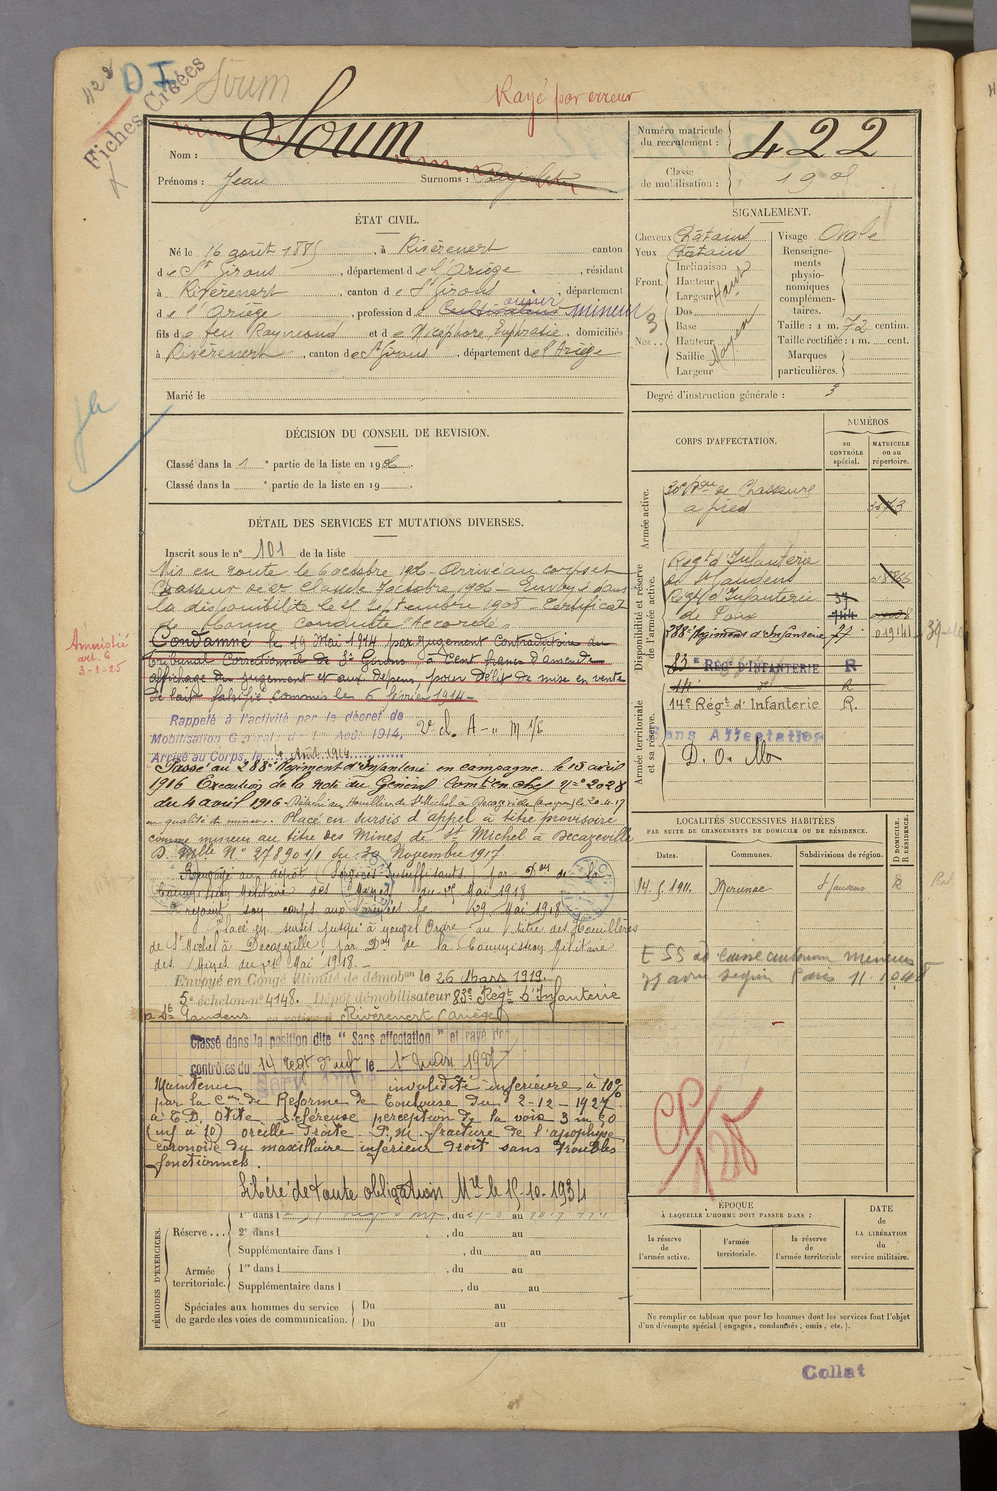 422
D I
Fiches Créées
Soum
Rayé par erreur
Nom : Soum
Prénoms : Jean Surnoms :
Numéro matricule
du recrutement : 422
Classe
de mobilisation : 19
ÉTAT CIVIL.
Né le 16 août 1885, à Rivèrenert canton
de St Girons, département de l'Ariège, résidant
à Rivèrenert, canton de St Girons, département
de l'Ariège, profession de Cultivateur ouvrier mineur
fils de feu Raymond et de Nicéphore Euphrasie, domiciliés
à Rivèrenert, canton de St Girons, département de l'Ariège
Marié le
SIGNALEMENT.
Cheveux Châtains
Yeux Châtains
Front. Inclinaison
Hauteur Haut
Largeur
Nez.. Dos
Base
Hauteur Moyen
Saillie
Largeur
Visage Ovale
Renseigne-
ments
physio-
nomiques
complémen-
taires.
Taille : 1 m. 72 centim.
Taille rectifiée : 1 m. cent.
Marques
particulières.
Degré d'instruction générale : 3
DÉCISION DU CONSEIL DE REVISION.
Classé dans la 1e partie de la liste en 1906.
Classé dans la e partie de la liste en 19
DÉTAIL DES SERVICES ET MUTATIONS DIVERSES.
Inscrit sous le n° 101 de la liste
Mis en route le 6 octobre 1906 - Arrivé au corps et
Chasseur de 2e Classe 7 octobre 1906 - Envoyé dans
la disponibilité le 25 Septembre 1908 - Certificat
de Bonne Conduite Accordé
Amnistié
art. 6
3-1-25
Condamné le 19 Mai 1914 par jugement Contradictoire du
tribunal Correctionnel de St Girons, à Cent francs d'amende
affichage du jugement et aux dépens, pour délit de mise en vente
de lait falsifié, commis le 6 février 1914 -
Rappelé à l'activité par le décret de
Mobilisation Générale du 1er Août 1914,
Arrivé au Corps, le 4 Août 1914
Passé au 288e Régiment d'Infanterie en campagne le 15 avril
1916 Execution de la note du Général Comt en chef n° 2028
du 4 avril 1916 - Détaché aux Houillères de St Michel à Decazeville (Aveyron) le 20-4-17
en qualité de mineur. Placé en sursis d'appel à titre provisoire
comme mineur au titre des Mines de St Michel à Decazeville
D. Mlle N° 27890 1/1 du 30 Novembre 1917
rejoint son corps aux armées le 29 Mai 1918
Placé en sursis jusqu'à nouvel Ordre au titre des Houillères
de St Michel à Decazeville, par Don de la Commission Militaire
des Mines du Mai 1918.-
Envoyé en Congé illimité de démobon le 26 Mars 1919.
5e échelon n° 4148. Dépôt démobilisateur 83e Régt d'Infanterie
à St Gaudens se retire à Rivèrenert (Ariège)
Classé dans la position dite "Sans affectation" et rayé des
contrôles du 14 Regt d'Inf le 1er Mars 1927
Maintenu invalidité inférieure à 10%
par la Con de Reforme de Toulouse du 2-12-1927
à T.D. Otite scléreuse perception de la voix 3m50
(inf à 10) oreille droite. P.M. fracture de l'apophyse
coronoïde du maxillaire inférieur droit sans troubles
fonctionnels.
Libéré de toute obligation Mre le 15-10-1934
PÉRIODES D'EXERCICES.
Réserve... 1re dans l , du au
2e dans l , du au
Supplémentaire dans l , du au
Armée
territoriale. 1re dans l , du au
Supplémentaire dans l , du au
Spéciales aux hommes du service
de garde des voies de communication. Du au
Du au
CORPS D'AFFECTATION.
NUMÉROS
au
CONTRÔLE
spécial.
MATRICULE
ou au
répertoire.
Armée active.
30e Bon de Chasseurs
à pied
Disponibilité et réserve
de l'armée active.
Regt d'Infanterie
de St Gaudens
Regt d'Infanterie 37
de Foix 144
288e Régiment d'Infanterie 77 019141
83e RÉGt D'INFANTERIE R
14e d° R
Armée territoriale
et sa réserve.
14e Régt d'Infanterie R.
Sans Affectation
D. O. Mo
LOCALITÉS SUCCESSIVES HABITÉES
PAR SUITE DE CHANGEMENTS DE DOMICILE OU DE RÉSIDENCE.
D DOMICILE.
R RÉSIDENCE.
Dates. Communes. Subdivisions de région.
14. 5 1911. St Gaudens R
E SS ad caisse autonom mineurs
77 avenue Segur Paris
CP/128
ÉPOQUE
À LAQUELLE L'HOMME DOIT PASSER DANS :
la réserve
de
l'armée active.
l'armée
territoriale.
la réserve
de
l'armée territoriale
DATE
de
LA LIBÉRATION
du
service militaire.
Ne remplir ce tableau que pour les hommes dont les services font l'objet
d'un décompte spécial (engagés, condamnés, omis, etc.).
Collat